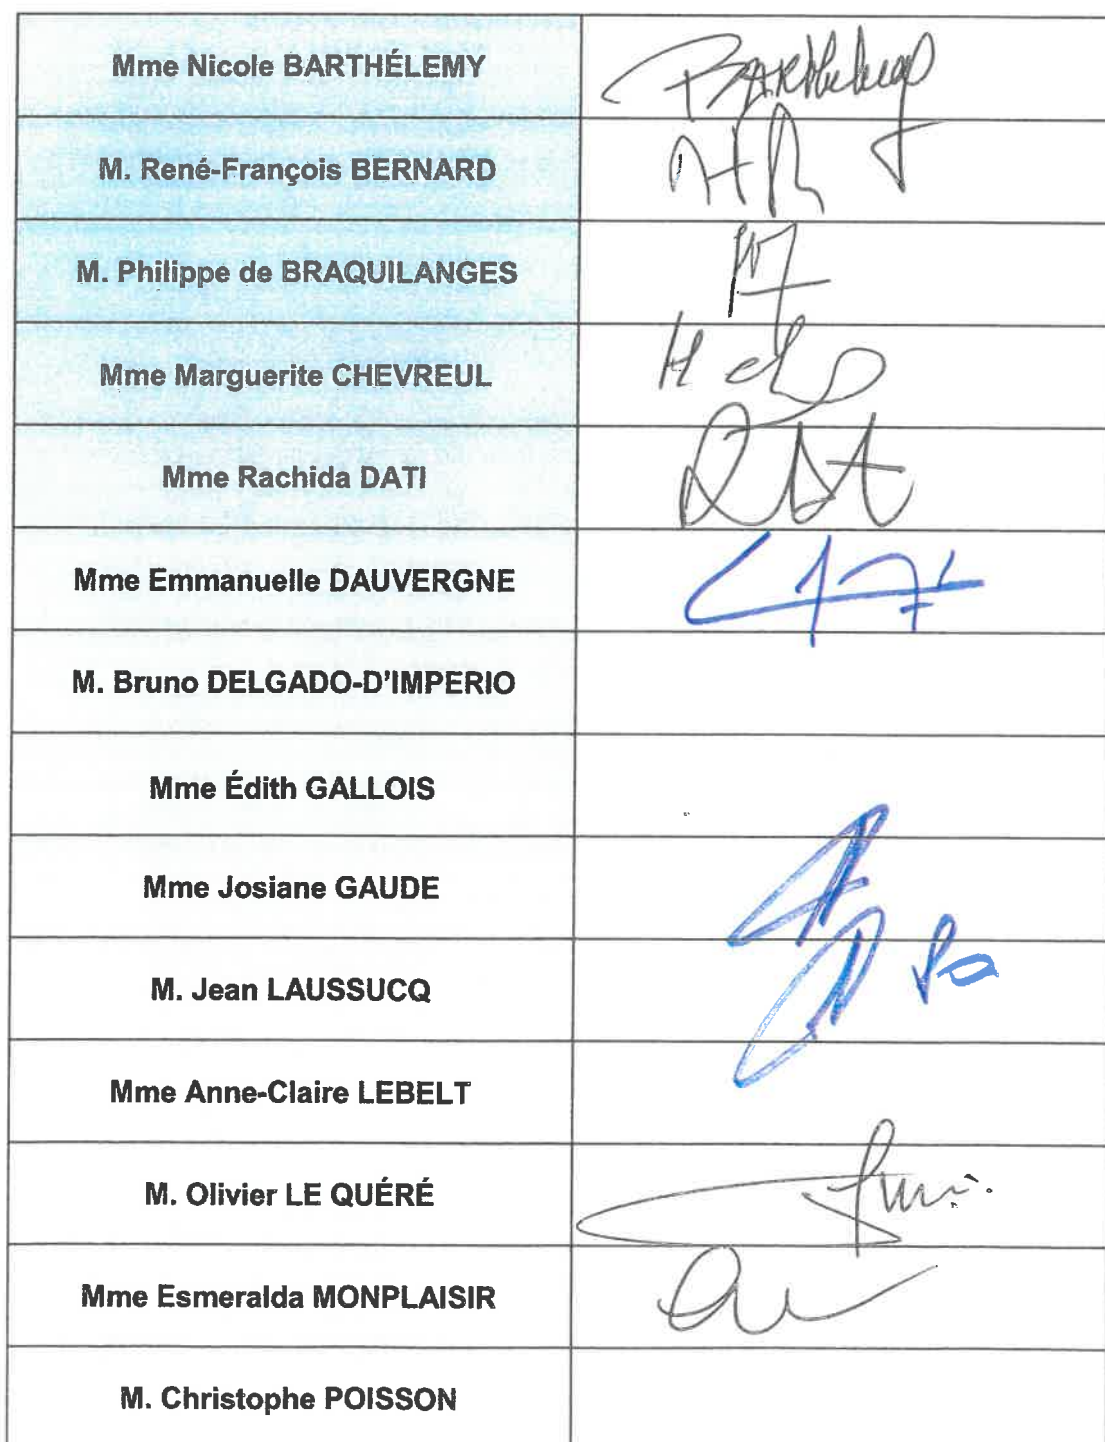 Mme Nicole BARTHÉLEMY
Barthelemy
M. René-François BERNARD
M. Philippe de BRAQUILANGES
Mme Marguerite CHEVREUL
Mme Rachida DATI
Mme Emmanuelle DAUVERGNE
M. Bruno DELGADO-D'IMPERIO
Mme Édith GALLOIS
Mme Josiane GAUDE
M. Jean LAUSSUCQ
Mme Anne-Claire LEBELT
M. Olivier LE QUÉRÉ
Mme Esmeralda MONPLAISIR
M. Christophe POISSON